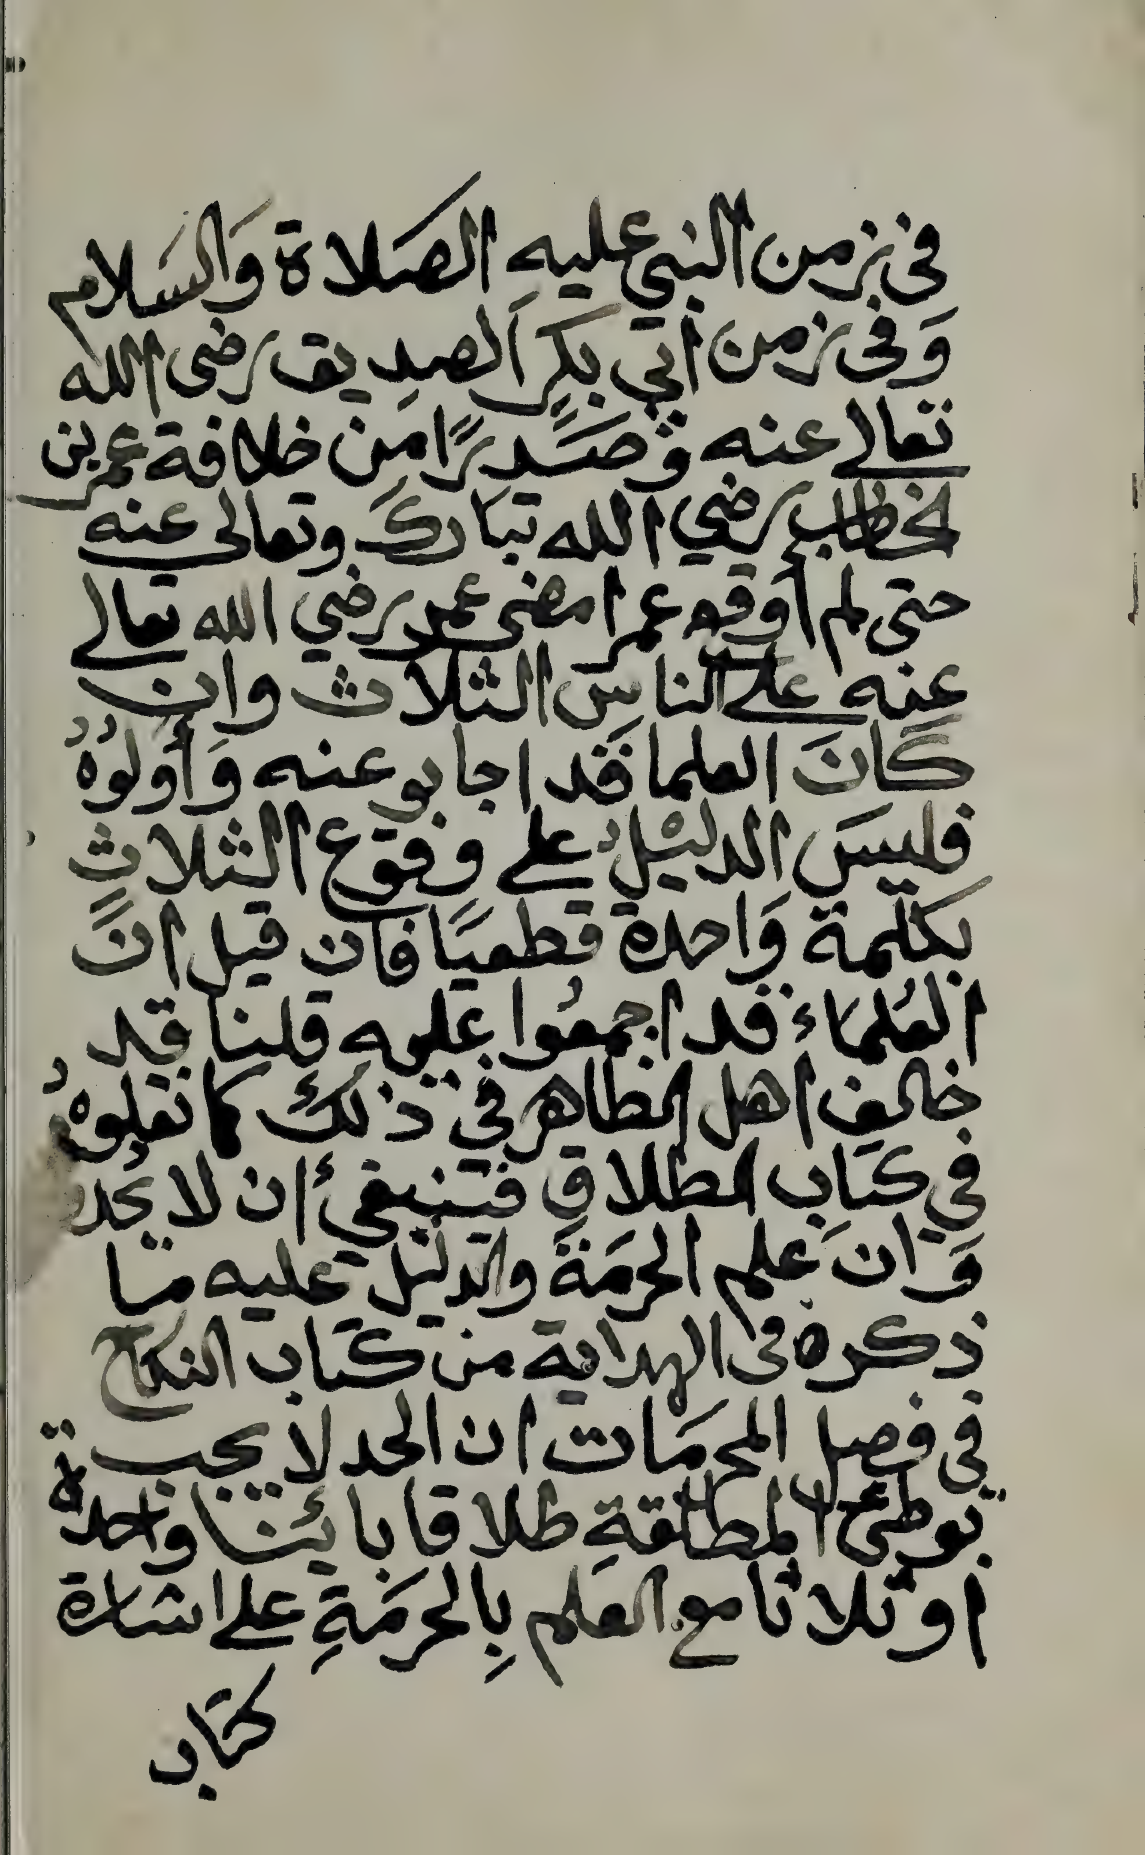 في زمن النبي عليه الصَلاة وَالسَلام
وَفى زمن ابي بكرٍ الصديق رضى الله
تعالى عنه وَصَدرًا من خلافة عمر بن
الخطاب رضي الله تبارك وتعالى عنه
حتى لم اوقوع عمر امضى عمر رضي الله تعالى
عنه على الناس الثلاث وان
كانَ العلما قد اجابو عنه وَأولوهُ
فليسَ الدليل على وقوع الثلاثِ
بكلمة وَاحدة قطعيَا فان قيل انَ
العُلماءَ قد اجمعُوا عليه قلنا قد
خالف اهل الظاهر في ذلك كما نقلوهُ
في كتاب الطلاقِ فتنبغي أن لا يُحد
وَان علم الحرمَة والدليل عليه ما
ذكره فى الهداية من كتاب النكاح
في فصل المحرمَات ان الحد لا يجب
بوطئ المطلقةِ طلاقا بائنا واحدة
او ثلاثا مع العلم بِالحرمَةِ على اشارة
كتاب